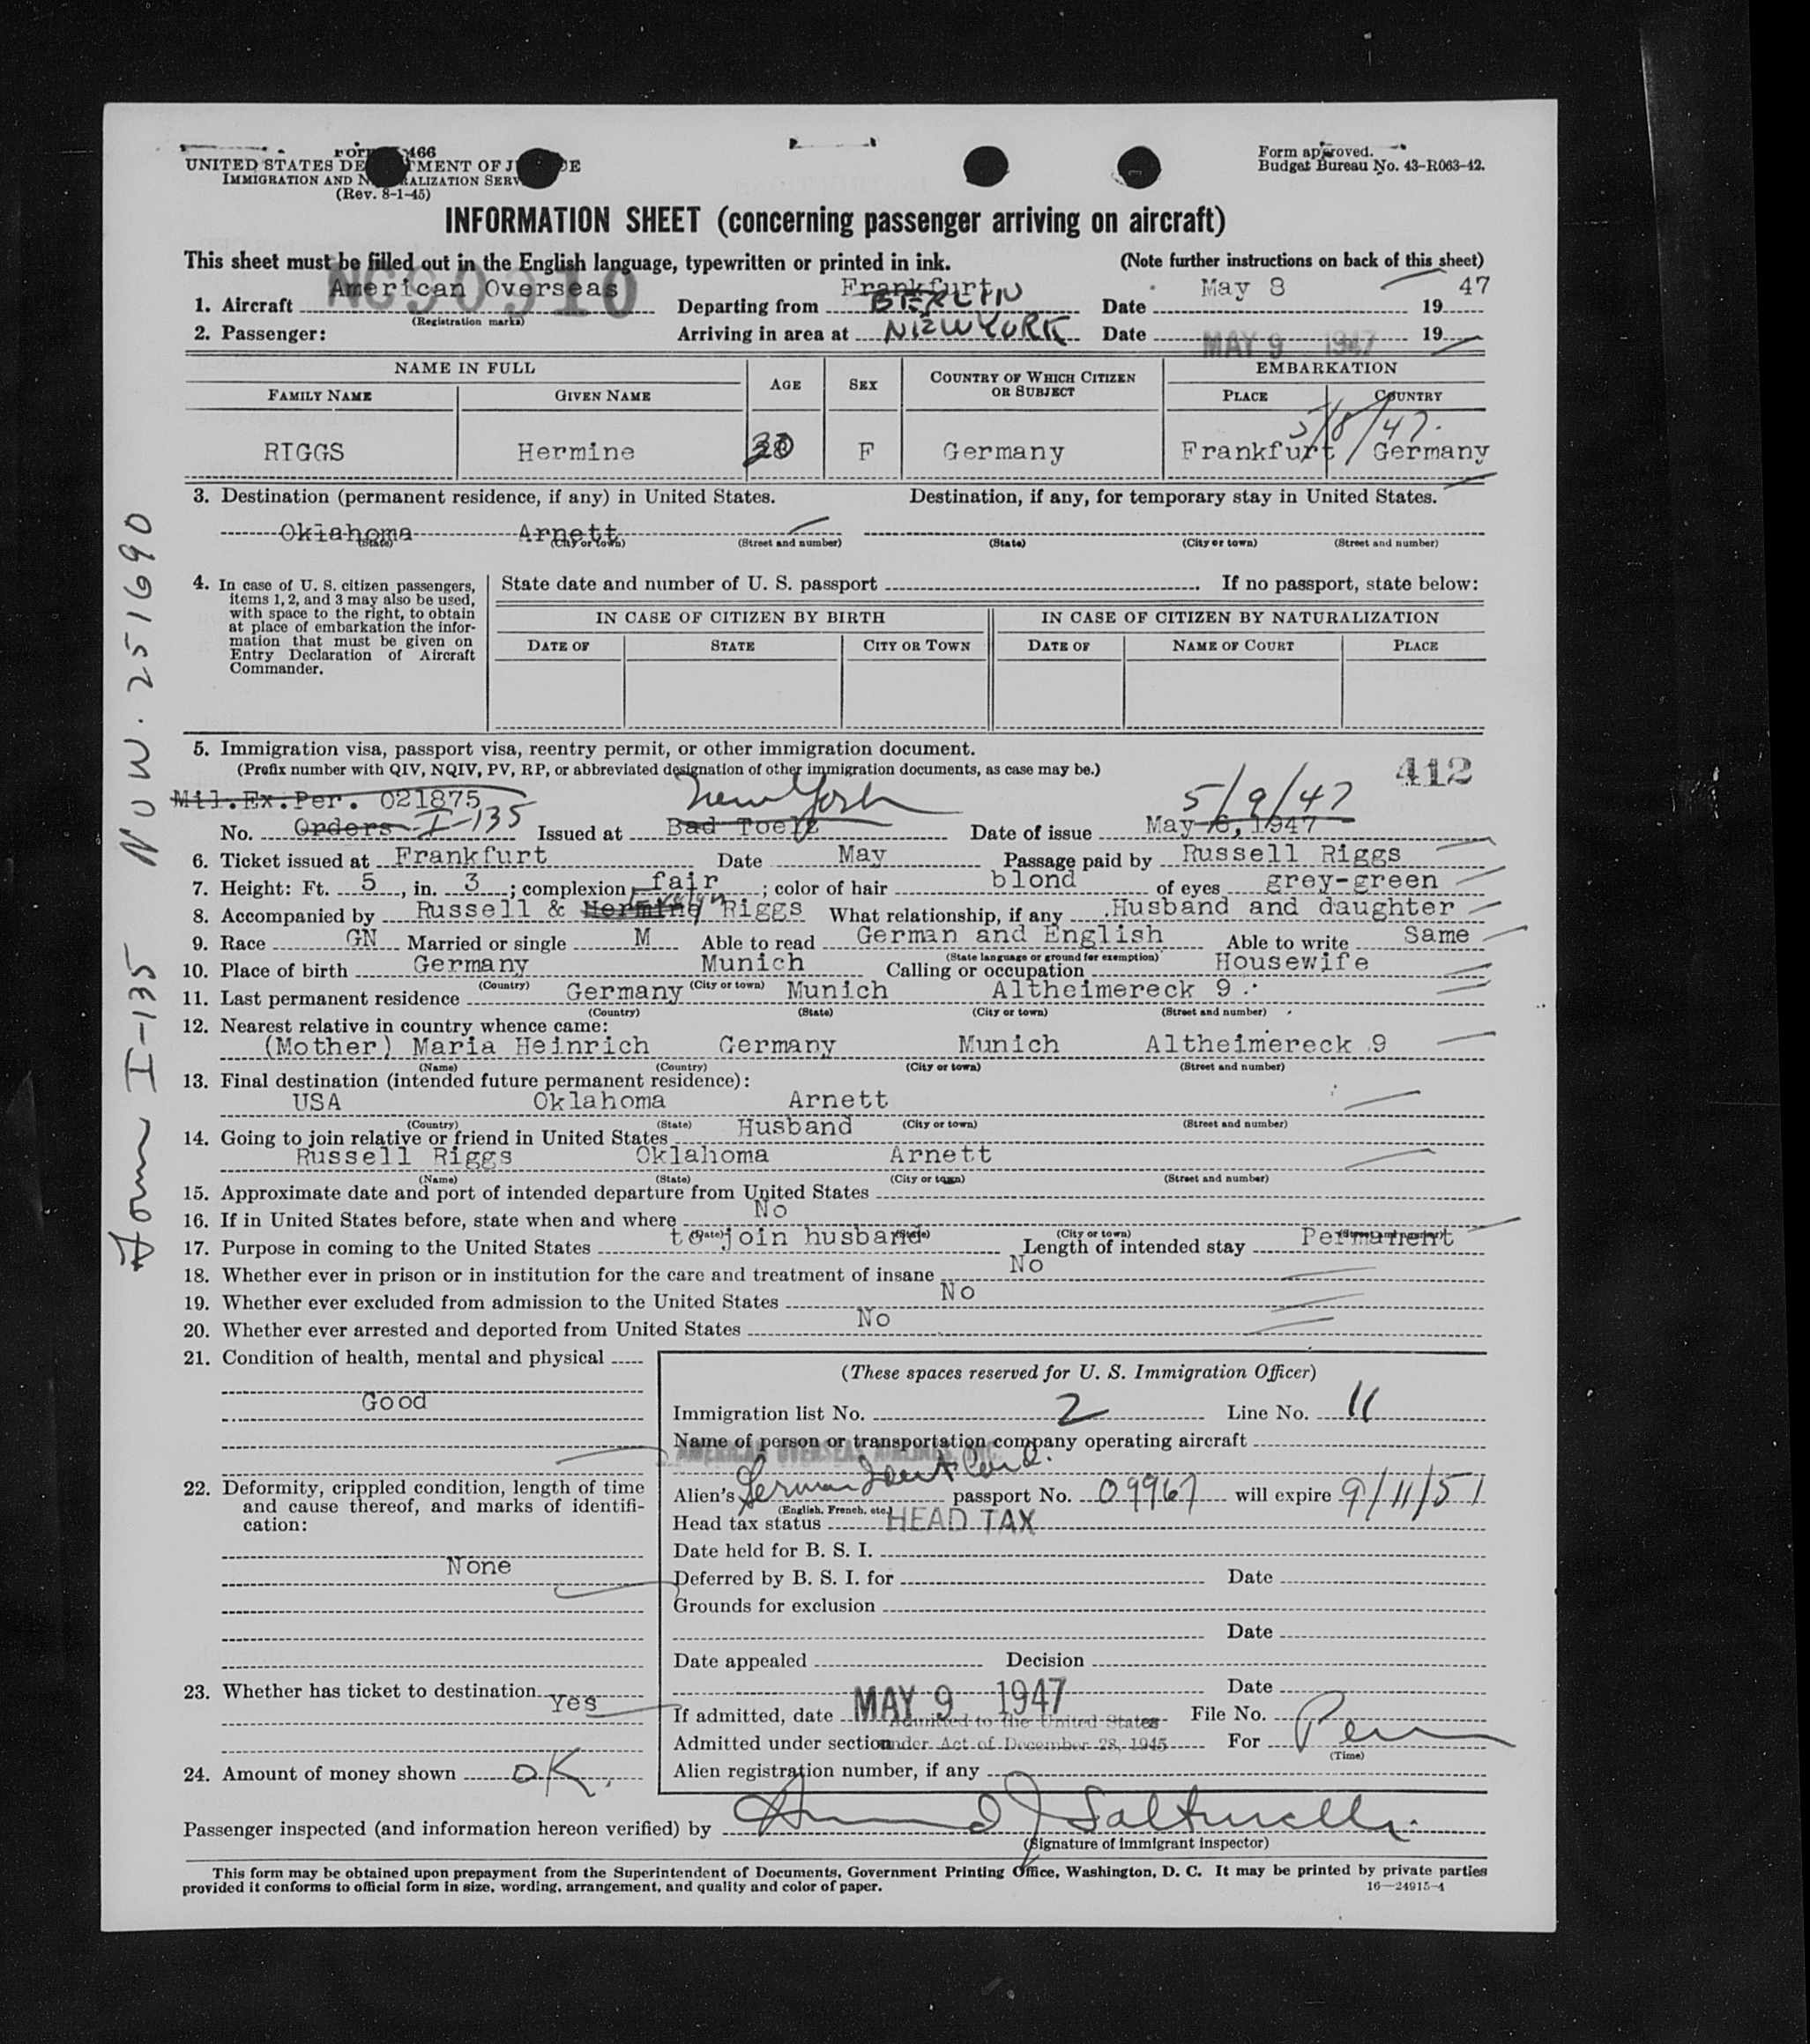 Form 466
UNITED STATES DEPARTMENT OF JUSTICE
IMMIGRATION AND NATURALIZATION SERVICE
(Rev. 8-1-45)
Form approved.
Budget Bureau No. 43-R063-42.
INFORMATION SHEET (concerning passenger arriving on aircraft)
This sheet must be filled out in the English language, typewritten or printed in ink. (Note further instructions on back of this sheet)
NC90910
1. Aircraft American Overseas Departing from Frankfurt BERLIN Date May 8 1947
(Registration marks)
2. Passenger: Arriving in area at NEW YORK Date MAY 9 1947 19
NAME IN FULL AGE SEX COUNTRY OF WHICH CITIZEN OR SUBJECT EMBARKATION
FAMILY NAME GIVEN NAME PLACE COUNTRY
5/8/47.
RIGGS Hermine F Germany Frankfurt Germany
3. Destination (permanent residence, if any) in United States. Destination, if any, for temporary stay in United States.
Oklahoma Arnett
(State) (City or town) (Street and number) (State) (City or town) (Street and number)
4. In case of U. S. citizen passengers, items 1, 2, and 3 may also be used, with space to the right, to obtain at place of embarkation the information that must be given on Entry Declaration of Aircraft Commander.
State date and number of U. S. passport . If no passport, state below:
IN CASE OF CITIZEN BY BIRTH IN CASE OF CITIZEN BY NATURALIZATION
DATE OF STATE CITY OR TOWN DATE OF NAME OF COURT PLACE
5. Immigration visa, passport visa, reentry permit, or other immigration document.
(Prefix number with QIV, NQIV, PV, RP, or abbreviated designation of other immigration documents, as case may be.)
412
Mil.Ex.Per. 021875 New York 5/9/47
No. Orders I-135 Issued at Bad Toelz Date of issue May 6, 1947
6. Ticket issued at Frankfurt Date May Passage paid by Russell Riggs
7. Height: Ft. 5, in. 3; complexion fair; color of hair blond of eyes grey-green
8. Accompanied by Russell & Hermine Riggs What relationship, if any Husband and daughter
9. Race GN Married or single M Able to read German and English Able to write Same
(State language or ground for exemption)
10. Place of birth Germany Munich Calling or occupation Housewife
(Country) (City or town)
11. Last permanent residence Germany Munich Altheimereck 9
(Country) (State) (City or town) (Street and number)
12. Nearest relative in country whence came:
(Mother) Maria Heinrich Germany Munich Altheimereck 9
(Name) (Country) (City or town) (Street and number)
13. Final destination (intended future permanent residence):
USA Oklahoma Arnett
(Country) (State) (City or town) (Street and number)
14. Going to join relative or friend in United States Husband
Russell Riggs Oklahoma Arnett
(Name) (State) (City or town) (Street and number)
15. Approximate date and port of intended departure from United States
16. If in United States before, state when and where No
(Date) (State) (City or town) (Street and number)
17. Purpose in coming to the United States to join husband Length of intended stay Permanent
18. Whether ever in prison or in institution for the care and treatment of insane No
19. Whether ever excluded from admission to the United States No
20. Whether ever arrested and deported from United States No
21. Condition of health, mental and physical
Good
22. Deformity, crippled condition, length of time and cause thereof, and marks of identification:
None
23. Whether has ticket to destination Yes
24. Amount of money shown OK.
(These spaces reserved for U. S. Immigration Officer)
Immigration list No. 2 Line No. 11
Name of person or transportation company operating aircraft
AMERICAN OVERSEAS AIRLINES INC.
Alien's German Ident Card. passport No. 09967 will expire 9/11/51
(English, French, etc.)
Head tax status HEAD TAX
Date held for B. S. I.
Deferred by B. S. I. for Date
Grounds for exclusion
Date
Date appealed Decision
Date
If admitted, date MAY 9 1947 File No.
Admitted to the United States
Admitted under section under Act of December 28, 1945 For Perm
(Time)
Alien registration number, if any
Passenger inspected (and information hereon verified) by
(Signature of immigrant inspector)
This form may be obtained upon prepayment from the Superintendent of Documents, Government Printing Office, Washington, D. C. It may be printed by private parties
provided it conforms to official form in size, wording, arrangement, and quality and color of paper. 16—24915-4
Form I-135 NOW. 251690